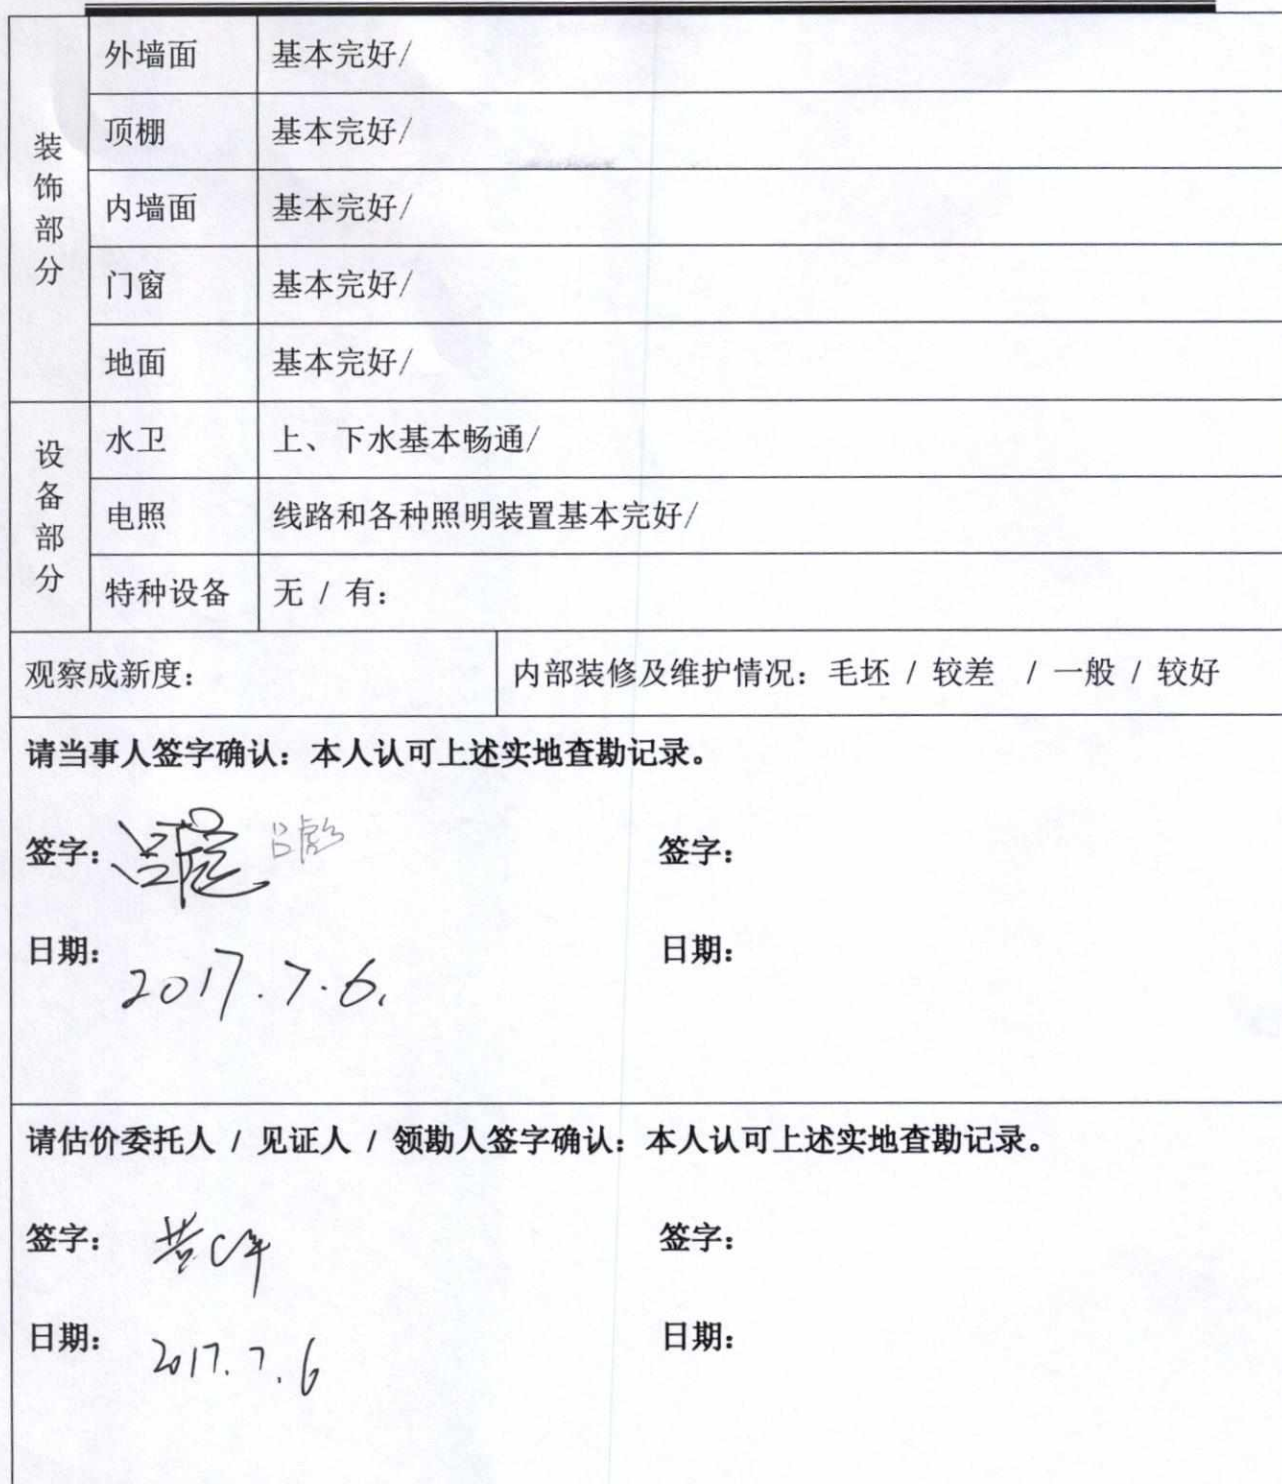 装饰部分
外墙面 基本完好/
顶棚 基本完好/
内墙面 基本完好/
门窗 基本完好/
地面 基本完好/
设备部分
水卫 上、下水基本畅通/
电照 线路和各种照明装置基本完好/
特种设备 无 / 有：
观察成新度： 内部装修及维护情况：毛坯 / 较差 / 一般 / 较好
请当事人签字确认：本人认可上述实地查勘记录。
签字： 吕彪 签字：
日期： 日期：
2017.7.6.
请估价委托人 / 见证人 / 领勘人签字确认：本人认可上述实地查勘记录。
签字： 签字：
日期： 日期：
2017.7.6